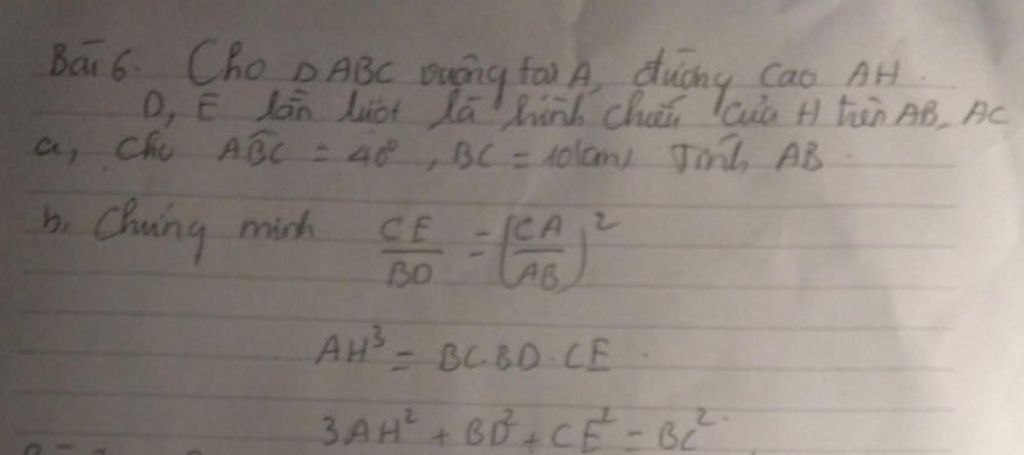 Bài 6. Cho △ABC vuông tại A, đường cao AH.
D, E lần lượt là hình chiếu của H trên AB, AC
a, Cho ABC = 40°, BC = 10(cm) Tính AB.
b. Chứng minh CE/BD = (CA/AB)²
AH³ = BC.BD.CE.
3AH² + BD² + CE² = BC².